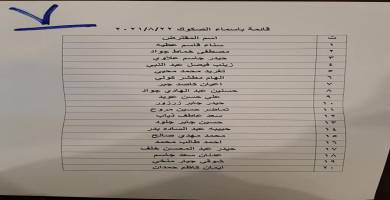 قائمة باسماء الصكوك ٢٠٢١/٨/٢٢
ت اسم المقترض
١ سناء قاسم عطيه
٢ مصطفى حماط جواد
٣ حيدر جاسم علاوي
٤ زينب فيصل عبد النبي
٥ تغريد محمد محيبي
٦ الهام مطشر كولي
٧ اعيان كاصد جبر
٨ حسنين عبد الهادي جواد
٩ علي حسن عويد
١٠ حيدر جابر زرزور
١١ تماضر حسين مروح
١٢ سعد عاطف ذياب
١٣ حسين جابر جلود
١٤ حبيبه عبد الساده بدر
١٥ محمد مهدي صالح
١٦ احمد طالب محمد
١٧ حيدر عبد المحسن خلف
١٨ عدنان سعد جاسم
١٩ شوقي جبار منخي
٢٠ ايمان كاظم حمدان